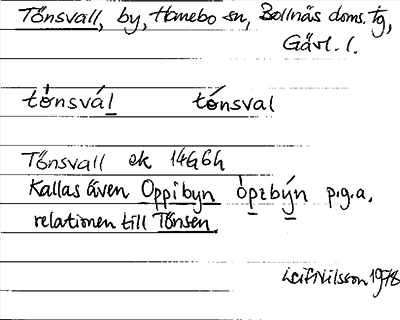 Tönsvall, by, Hanebo sn, Bollnäs doms. tg,
Gävl. l.
tö́nsvál tö́nsval
Tönsvall ek 14G6h
Kallas även Oppibyn ópibýn p.g.a.
relationen till Tönsen.
Leif Nilsson 1978